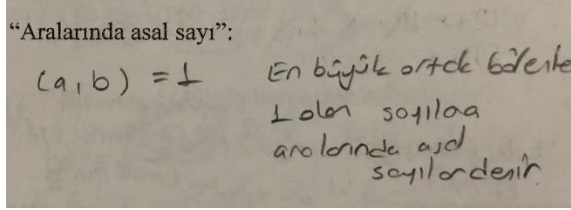 “Aralarında asal sayı”:
(a, b) = 1
En büyük ortak bölenle
1 olan sayılaa
aralarında asal
sayılar denir.